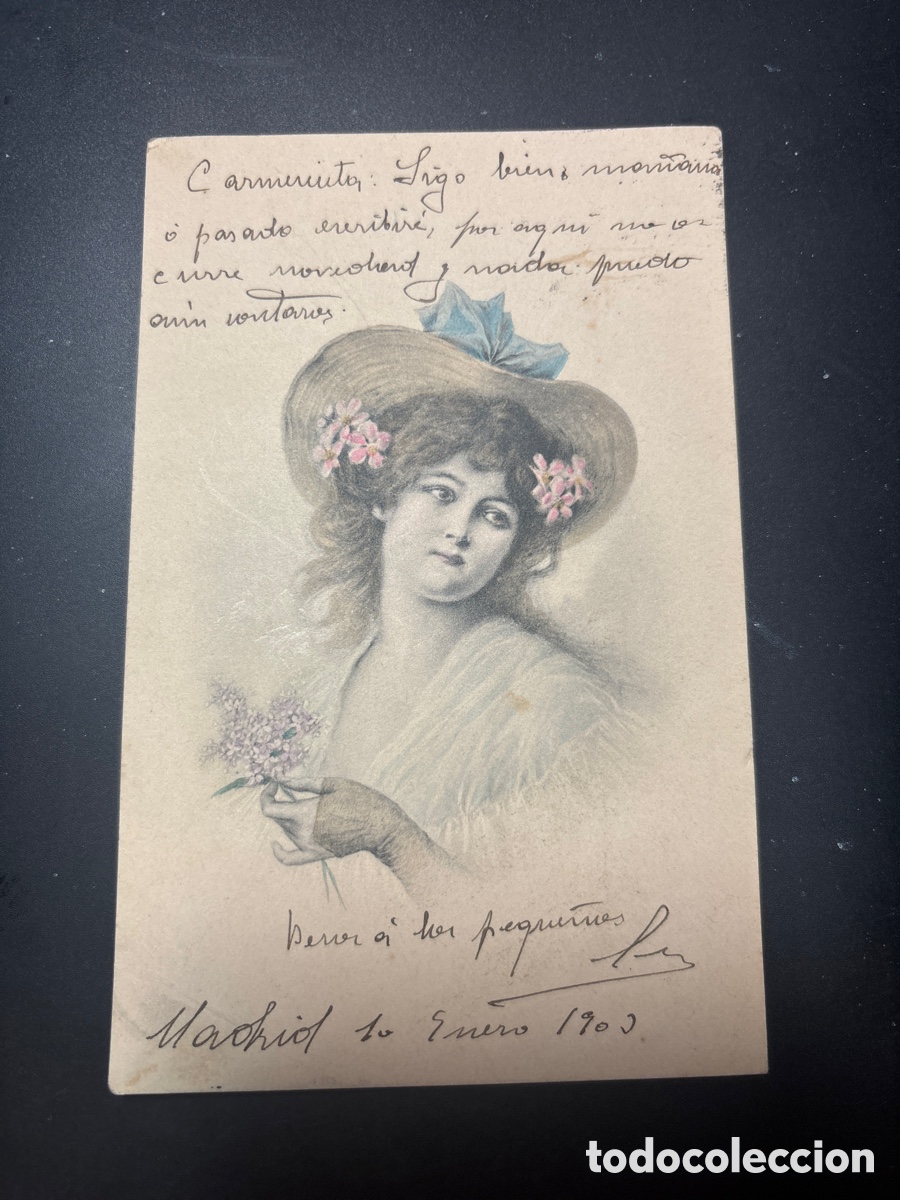 Carmencita: Sigo bien, mañana
ó pasado escribiré, por aquí no o
curre novedad y nada puedo
aún contaros.
Besos á los pequeños
Madrid 10 Enero 1903
todocoleccion